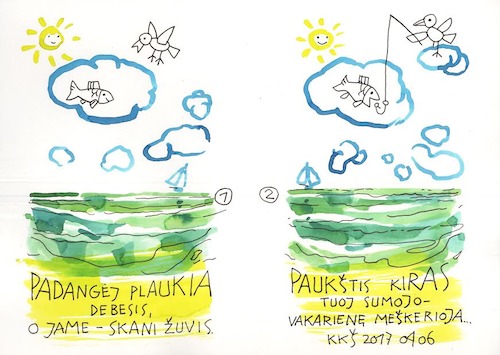 1
PADANGĖJ PLAUKIA
DEBESIS,
O JAME - SKANI ŽUVIS.
2
PAUKŠTIS KIRAS
TUOJ SUMOJO -
VAKARIENĘ MEŠKERIOJA...
KKŠ 2017 04 06